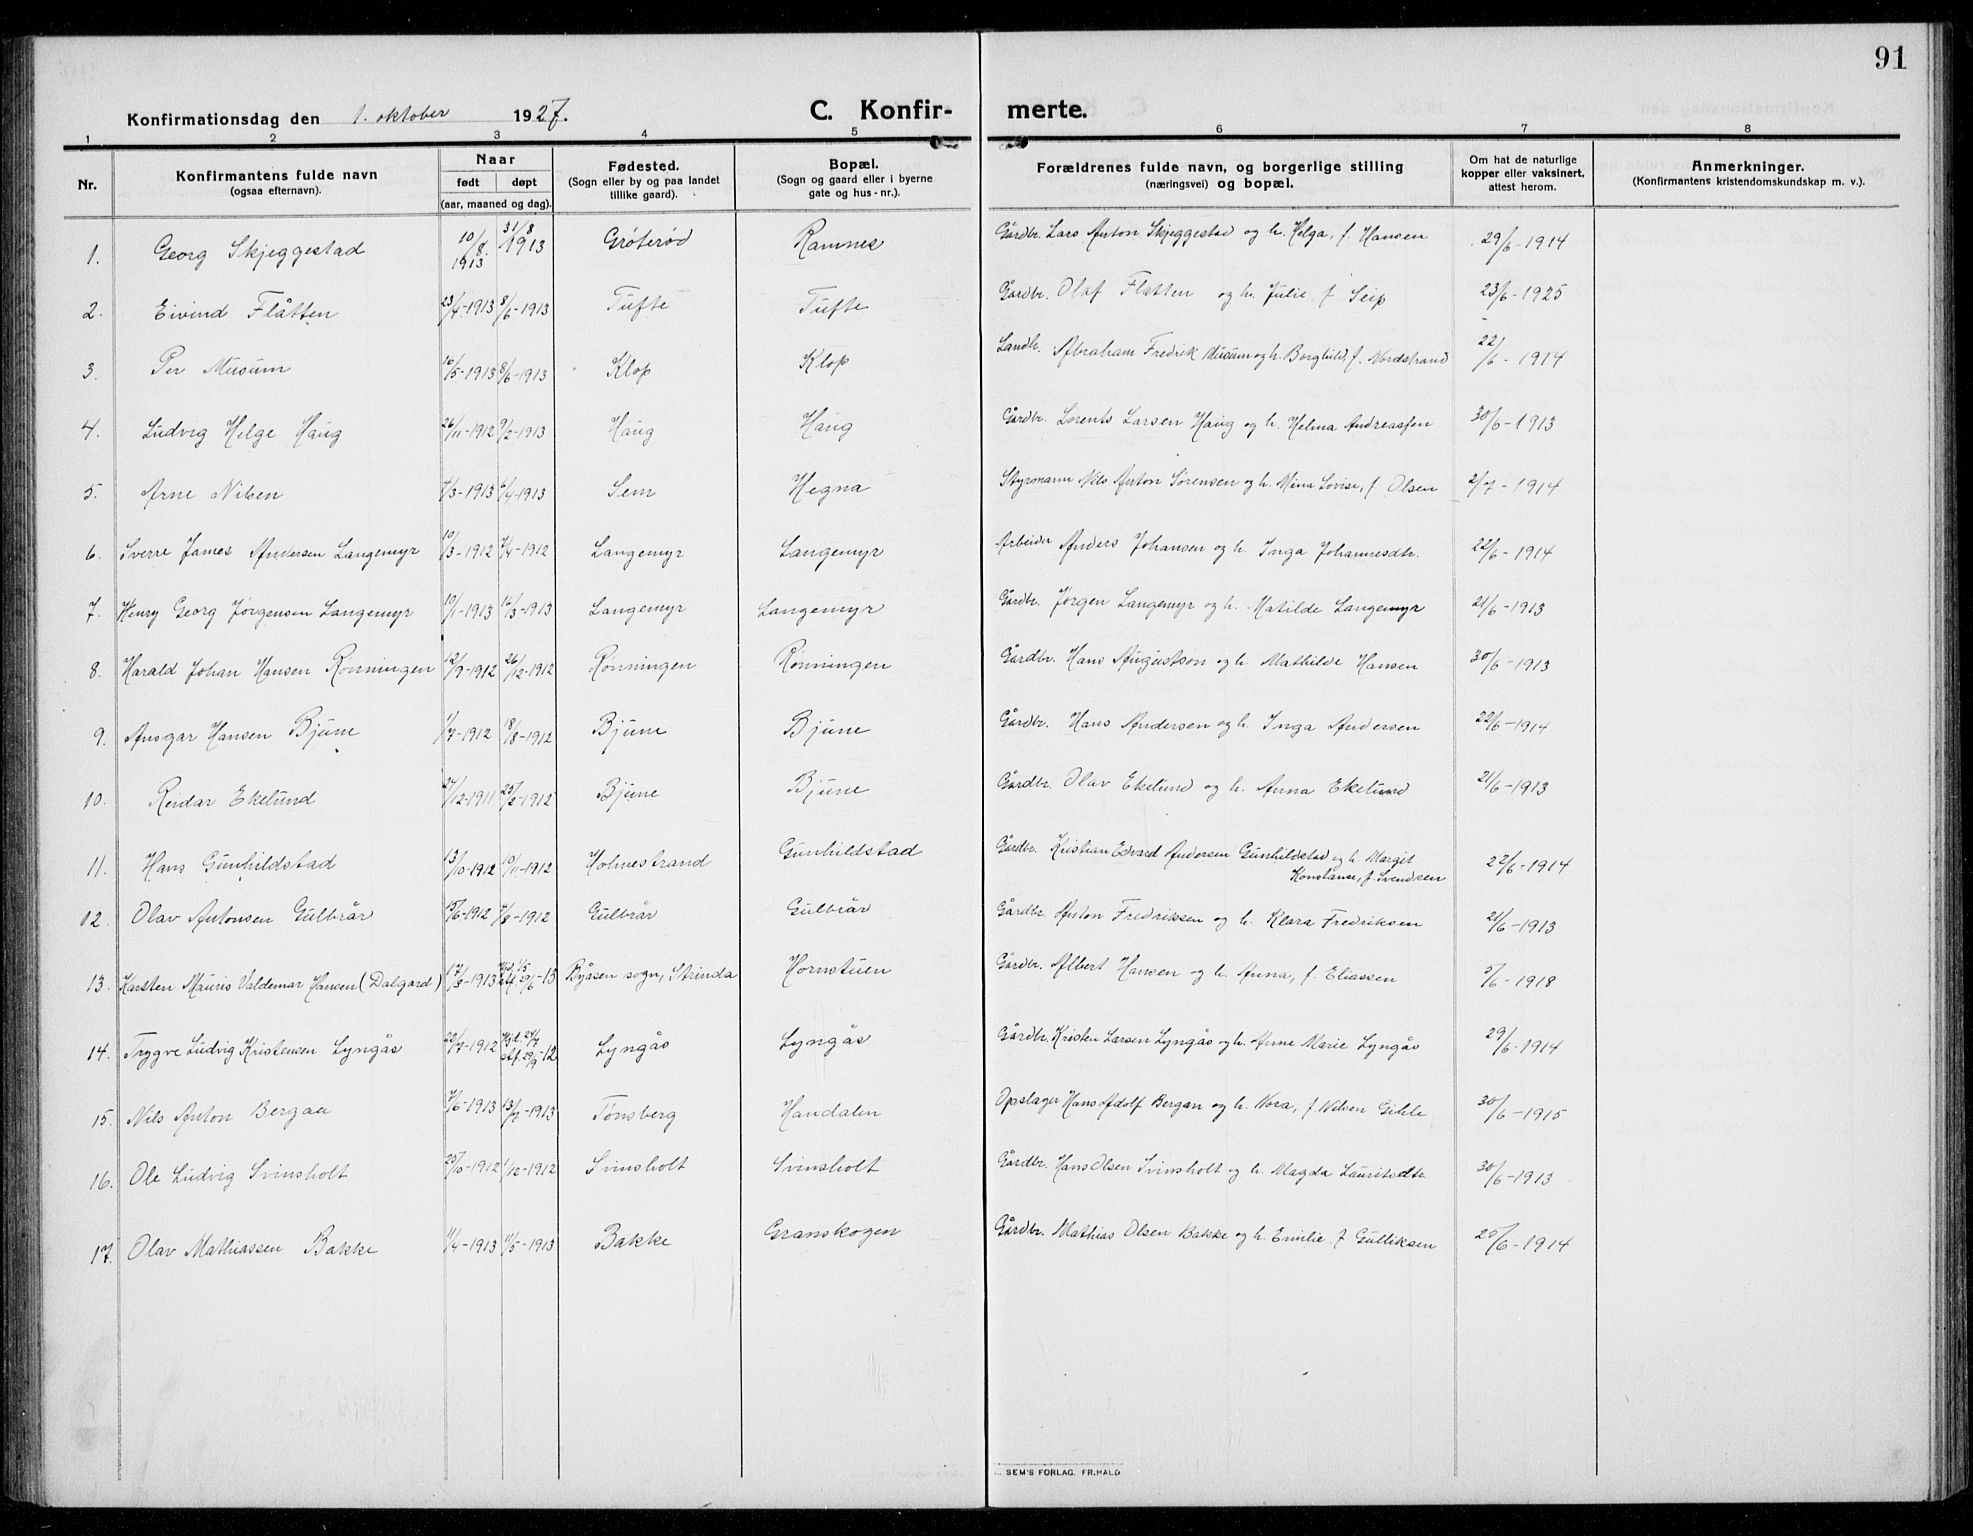 91
Konfirmationsdag den 1. oktober 1927.
C. Konfirmerte.
1 2 3 4 5 6 7 8
Nr.
Konfirmantens fulde navn
(ogsaa efternavn).
Naar
født døpt
(aar, maaned og dag).
Fødested.
(Sogn eller by og paa landet
tillike gaard).
Bopæl.
(Sogn og gaard eller i byerne
gate og hus-nr.).
Forældrenes fulde navn, og borgerlige stilling
(næringsvei) og bopæl.
Om hat de naturlige
kopper eller vaksinert,
attest herom.
Anmerkninger.
(Konfirmantens kristendomskundskap m. v.).
1. Georg Skjeggestad 10/8 1913 31/8 1913 Gröterød Ramnes Gårdbr. Lars Anton Skjeggestad og h. Helga, f. Hansen 29/6-1914
2. Eivind Flåtten 23/4-1913 8/6-1913 Tufte Tufte Gardbr. Olaf Flatten og h. Julie f Seip 23/6-1925
3. Per Musum 16/5-1913 8/6-1913 Klop Klop Landh. Abraham Fredrik Musum og h. Borghild, f. Nordstrand 22/6-1914
4. Ludvig Helge Haug 26/11-1912 9/2-1913 Haug Haug Gårdbr. Lorents Larsen Haug og h. Helma Andreassen 30/6-1913
5. Arne Nilsen 7/3-1913 6/4-1913 Sem Hegna Styrmann Nils Anton Sörensen og h. Mina Lovise, f. Olsen 2/7-1914
6. Sverre James Andersen Langemyr 10/3-1912 7/4-1912 Langemyr Langemyr Arbeider Anders Johansen og h. Inga Johannesdtr. 22/6-1914
7. Henry Georg Jørgensen Langemyr 10/1-1913 16/3-1913 Langemyr Langemyr Gårdbr. Jørgen Langemyr og h. Matilde Langemyr 21/6-1913
8. Harald Johan Hansen Rönningen 12/9-1912 26/12-1912 Rönningen Rönningen Gårdbr. Hans Augustson og h. Mathilde Hansen 30/6-1913
9. Ansgar Hansen Bjune 1/7-1912 18/8-1912 Bjune Bjune Gårdbr. Hans Andersen og h. Inga Andersen 22/6-1914
10. Reidar Ekelund 27/12-1911 25/2-1912 Bjune Bjune Gårdbr. Olav Ekelund og h. Anna Ekelund 21/6-1913
11. Hans Gunhildstad 13/10-1912 10/11-1912 Holmestrand Gunhildstad Gårdbr. Kristian Edvard Andersen Gunhildstad og h. Margit
Konstanse, f. Svendsen 22/6-1914
12. Olav Antonsen Gulbrår 15/6-1912 7/8-1912 Gulbrår Gulbrår Gårdbr. Anton Fredriksen og h. Klara Fredriksen 21/6-1913
13. Karsten Mauris Valdemar Hansen (Dalgard) 17/3-1913 Hjd. 1/5 stf. 29/6-13 Byåsen sogn, Strinda Hornstuen Gårdbr. Albert Hansen og h. Anna, f. Eliassen 5/6-1918
14. Trygve Ludvig Kristensen Lyngås 22/7-1912 Hjd. 24/7 stf. 29/9-12 Lyngås Lyngås Gårdbr. Kristen Larsen Lyngås og h. Anne Marie Lyngås 29/6-1914
15. Nils Anton Bergan 7/6-1913 13/7-1913 Tønsberg Handalen Opslager Hans Adolf Bergan og h. Nora, f. Nilsen Gihle 30/6-1915
16. Ole Ludvig Svinsholt 1/12-1912 Svinsholt Svinsholt Gårdbr. Hans Olsen Svinsholt og h. Magda Lauritsdtr. 30/6-1913
17. Olav Mathiassen Bakke 11/4-1913 11/5-1913 Bakke Granskogen Gårdbr. Mathias Olsen Bakke og h. Emilie f Gulliksen 25/6-1914
SEM'S FORLAG. FR. HALD